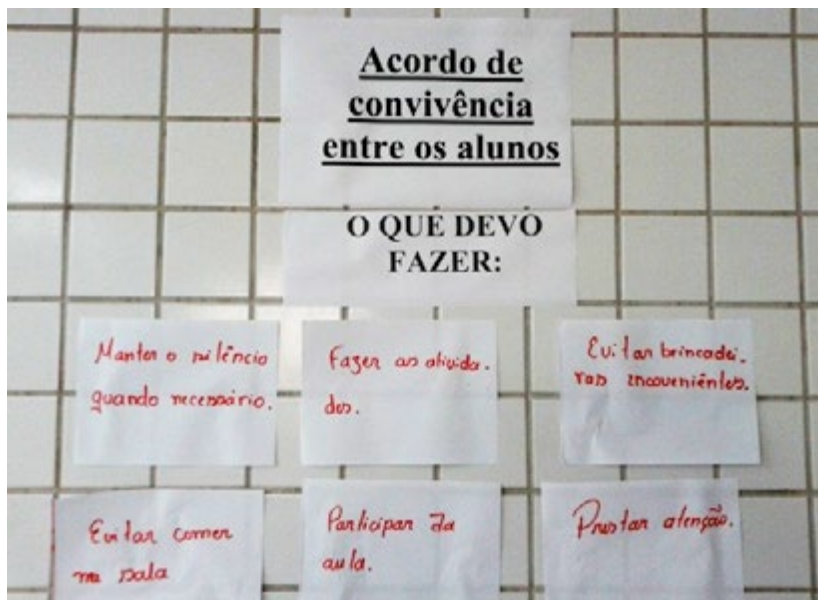 Acordo de
convivência
entre os alunos
O QUE DEVO
FAZER:
Manter o silêncio
quando necessário.
Fazer as ativida.
des.
Evitar brincadei.
ras incovenièntes.
Evitar comer
na sala
Participar da
aula.
Prestar atenção.